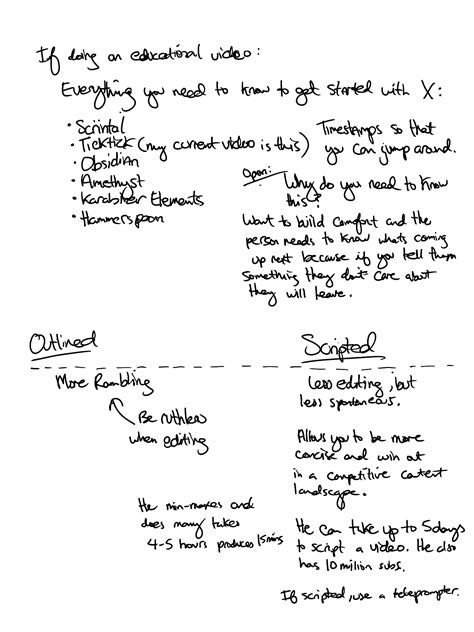 If doing an educational video:
Everything you need to know to get started with X:
• Scrintal
• Ticktick (my current video is this)
• Obsidian
• Amethyst
• Karabiner Elements
• Hammerspoon
Timestamps so that
you can jump around.
Open:
Why do you need to know
this?
Want to build comfort and the
person needs to know whats coming
up next because if you tell them
something they don't care about
they will leave.
Outlined
Scripted
More Rambling
Be ruthless
when editing
He min-maxes and
does many takes
4-5 hours produces 15 mins
Less editing, but
less spontaneous.
Allows you to be more
concise and win out
in a competitive content
landscape.
He can take up to 5 days
to script a video. He also
has 10 million subs.
If scripted, use a teleprompter.